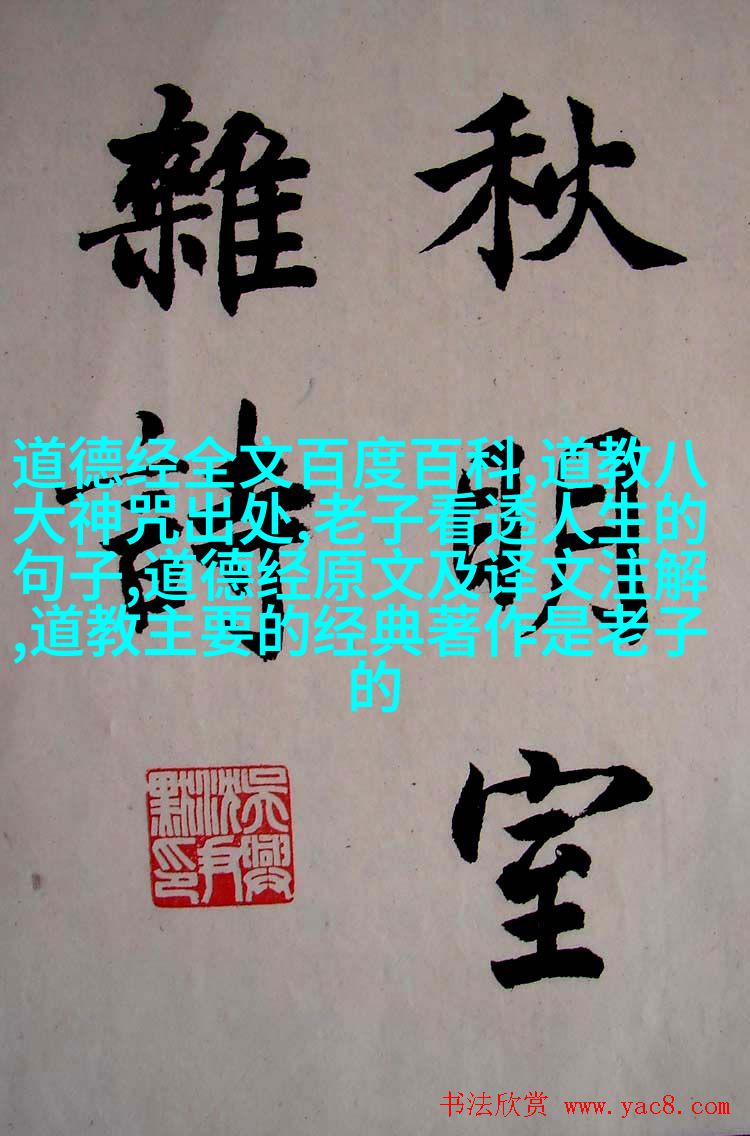 秋明室
雜詩
吳興
沈尹
默印
道德经全文百度百科,道教八
大神咒出处,老子看透人生的
句子,道德经原文及译文注解
,道教主要的经典著作是老子
的
书法欣赏 www.yac8.com